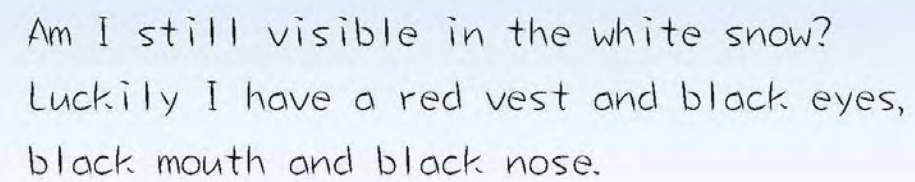 Am I still visible in the white snow?
Luckily I have a red vest and black eyes,
black mouth and black nose.